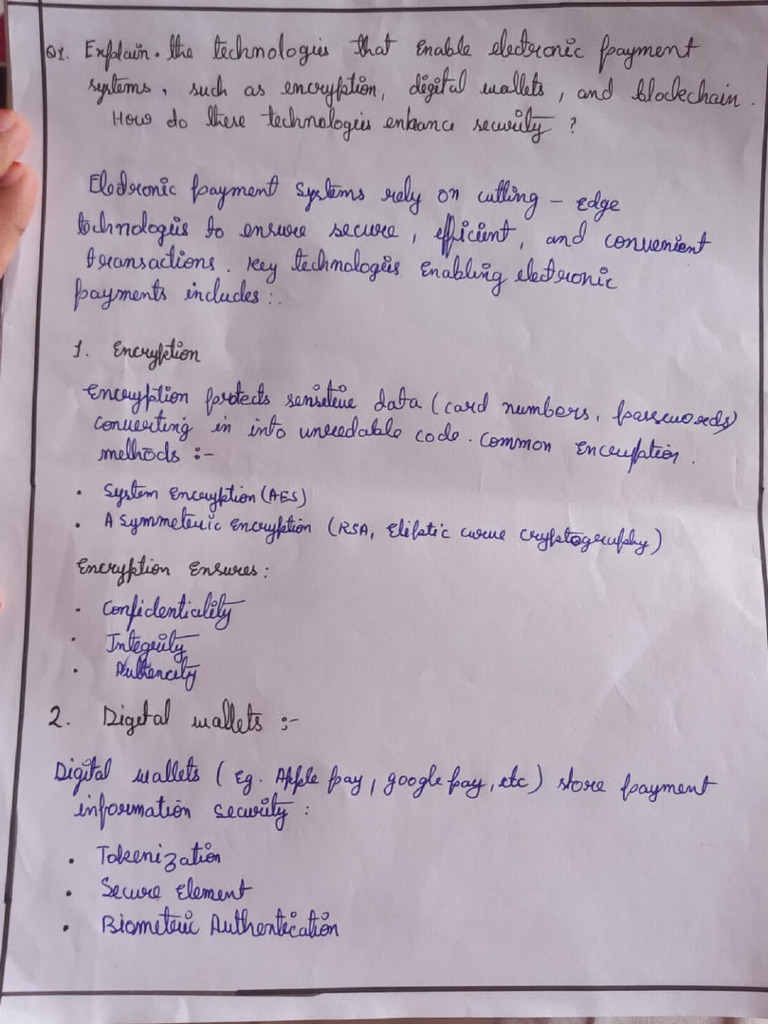 Q1. Explain. the technologies that enable electronic payment
systems, such as encryption, digital wallets, and blockchain.
How do these technologies enhance security ?
Electronic payment systems rely on cutting - edge
technologies to ensure secure, efficient, and convenient
transactions. Key technologies Enabling electronic
payments includes :.
1. Encryption
Encryption protects sensitive data (card numbers, passwords)
converting in into unreadable code. Common Encryption.
methods :-
• System Encryption (AES)
• Asymmeteric Encryption (RSA, Eliptic curve cryptography)
Encryption Ensures :
• Confidentiality
• Integrity
• Authencity
2. Digital wallets :-
Digital wallets ( Eg. Apple pay, google pay, etc) store payment
information security :
• Tokenization
• Secure Element
• Biometric Authentication